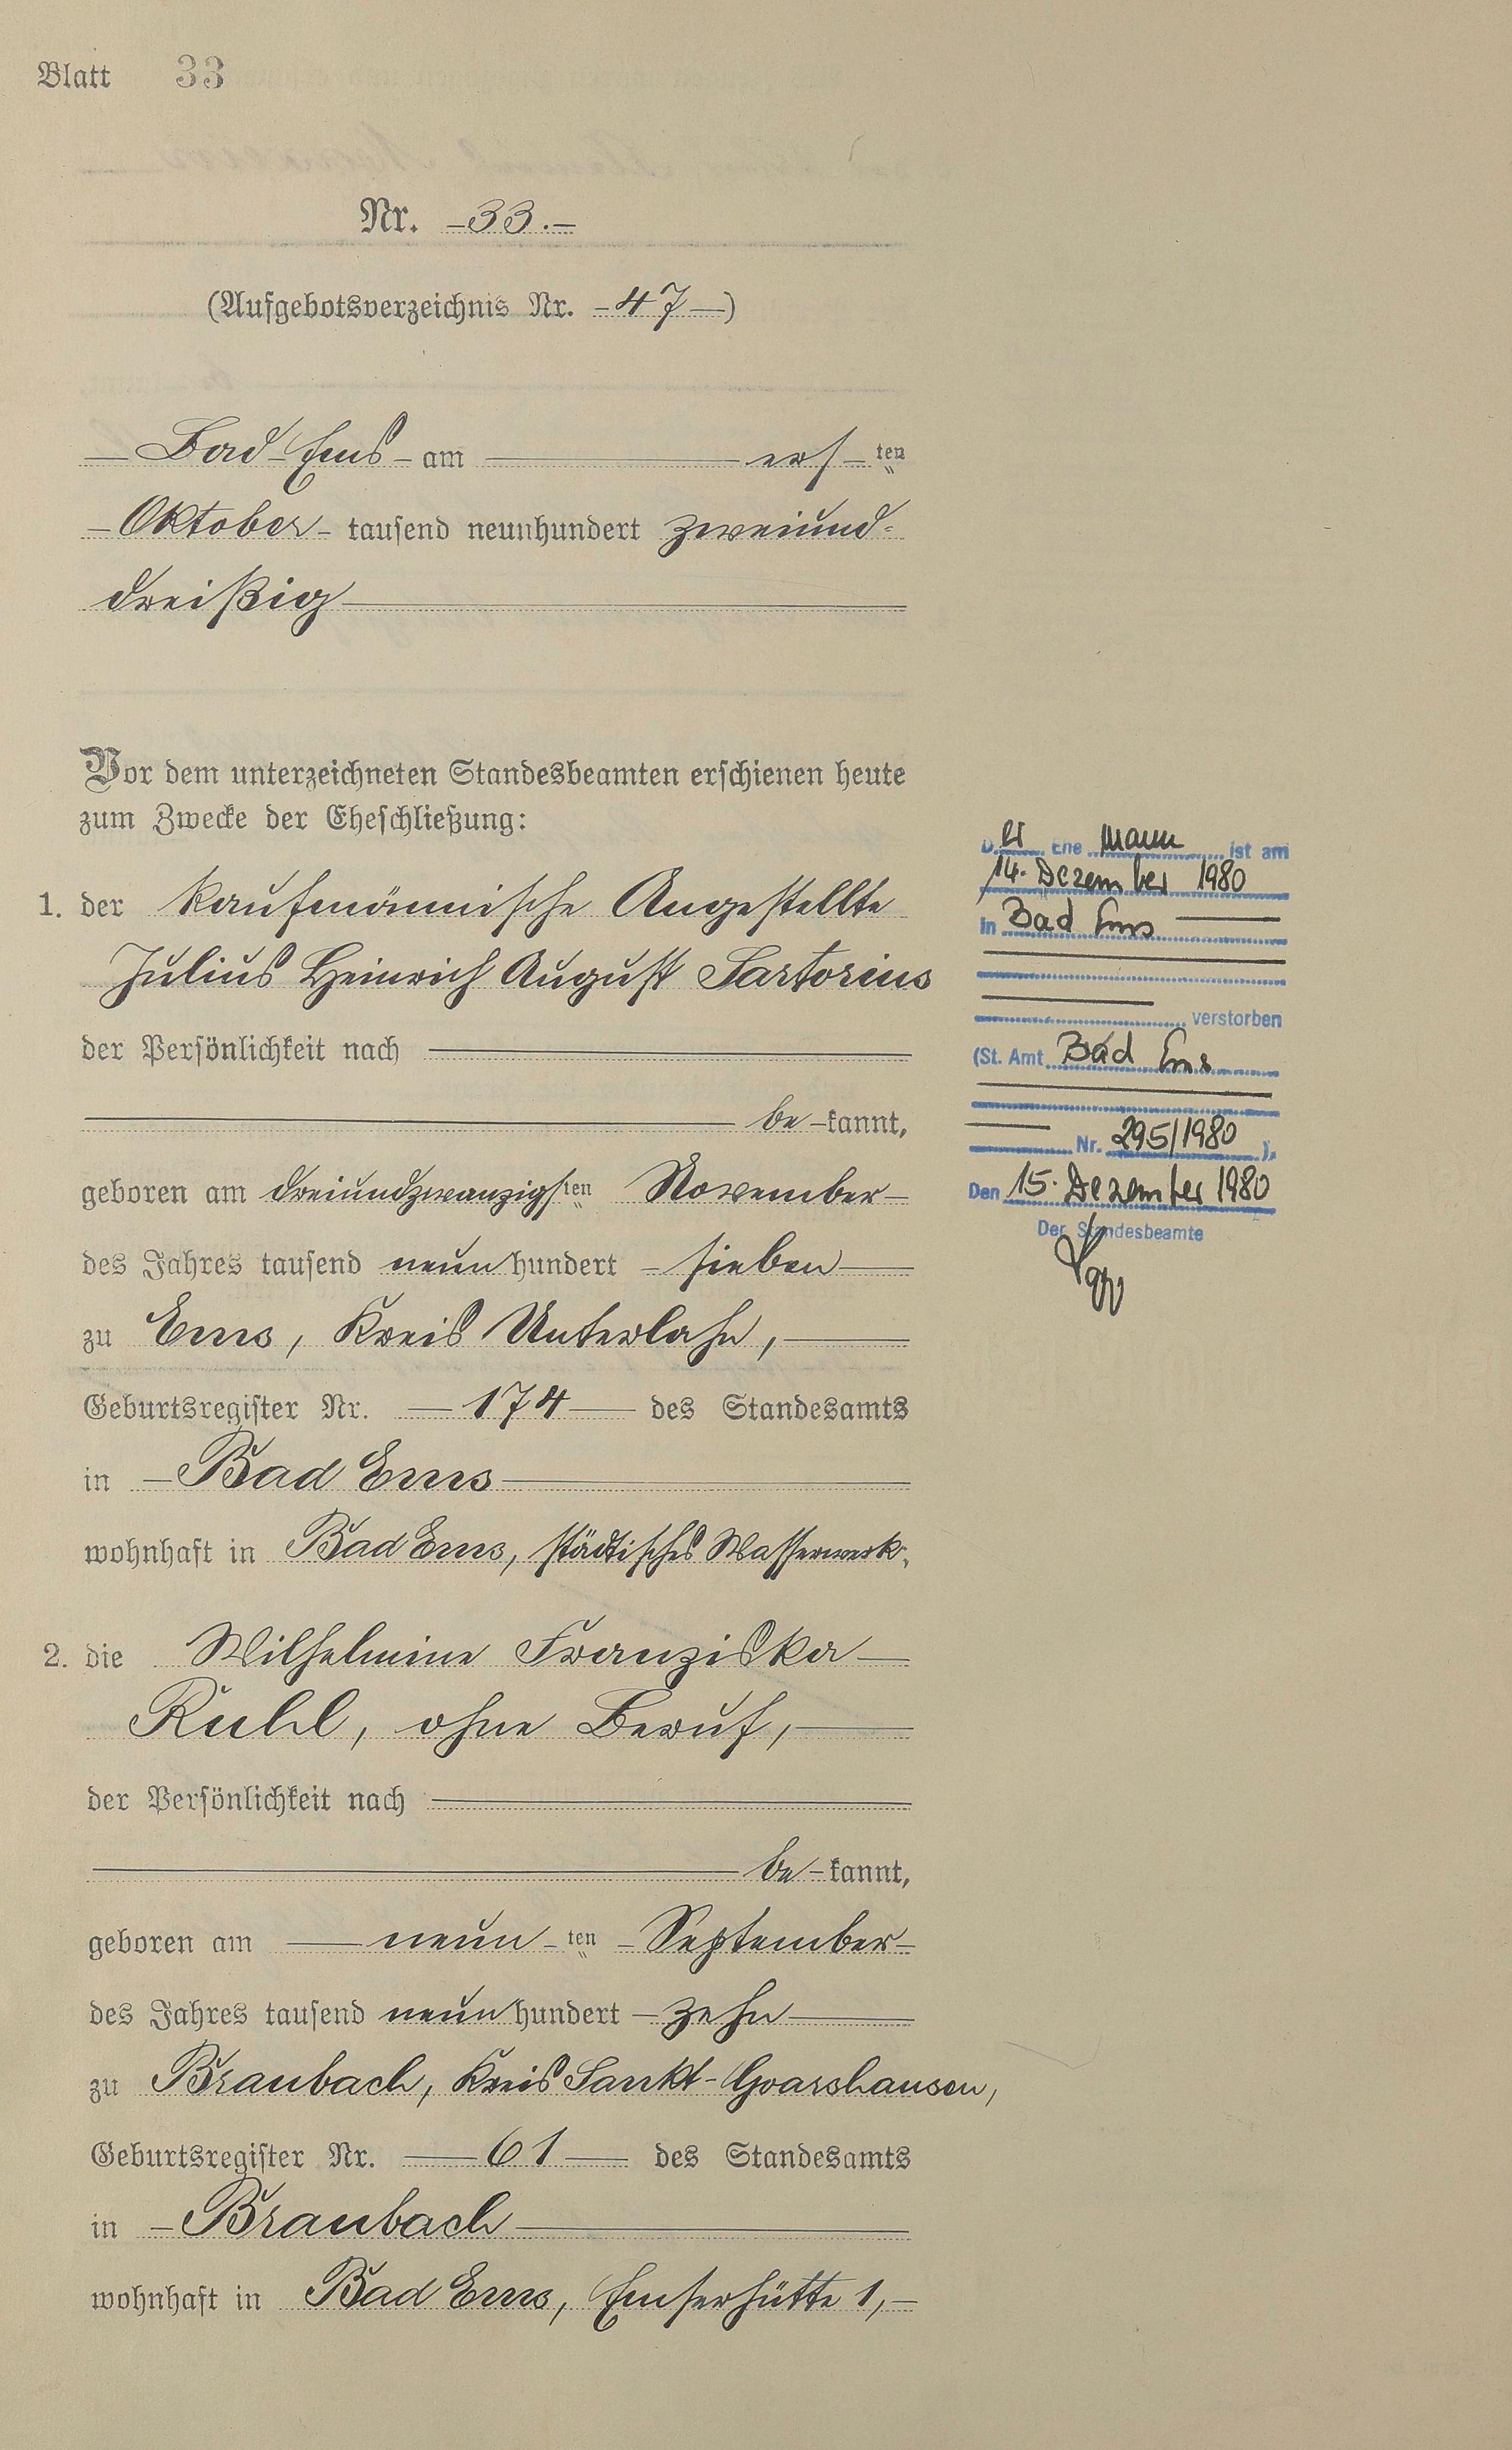 Blatt 33
Nr. -33.-
(Aufgebotsverzeichnis Nr. -47-)
- Bad Ems - am erſ-ten
- Oktober - tausend neunhundert zweiund-
dreißig
Vor dem unterzeichneten Standesbeamten erschienen heute
zum Zwecke der Eheschließung:
1. der kaufmännische Angestellte
Julius Heinrich August Sartorius
der Persönlichkeit nach
be-kannt,
geboren am dreiundzwanzigsten November
des Jahres tausend neun hundert sieben
zu Ems, Kreis Unterlahn,
Geburtsregister Nr. 174 des Standesamts
in Bad Ems
wohnhaft in Bad Ems, städtisches Wasserwerk,
2. die Wilhelmine Franziska
Ruhl, ohne Beruf,
der Persönlichkeit nach
be-kannt,
geboren am neun-ten September
des Jahres tausend neun hundert zehn
zu Braubach, Kreis Sankt-Goarshausen,
Geburtsregister Nr. 61 des Standesamts
in Braubach
wohnhaft in Bad Ems, Emserhütte 1,
D er Ehe mann ist am
14. Dezember 1980
in Bad Ems
verstorben
(St. Amt Bad Ems
Nr. 295/1980 ).
Den 15. Dezember 1980
Der Standesbeamte